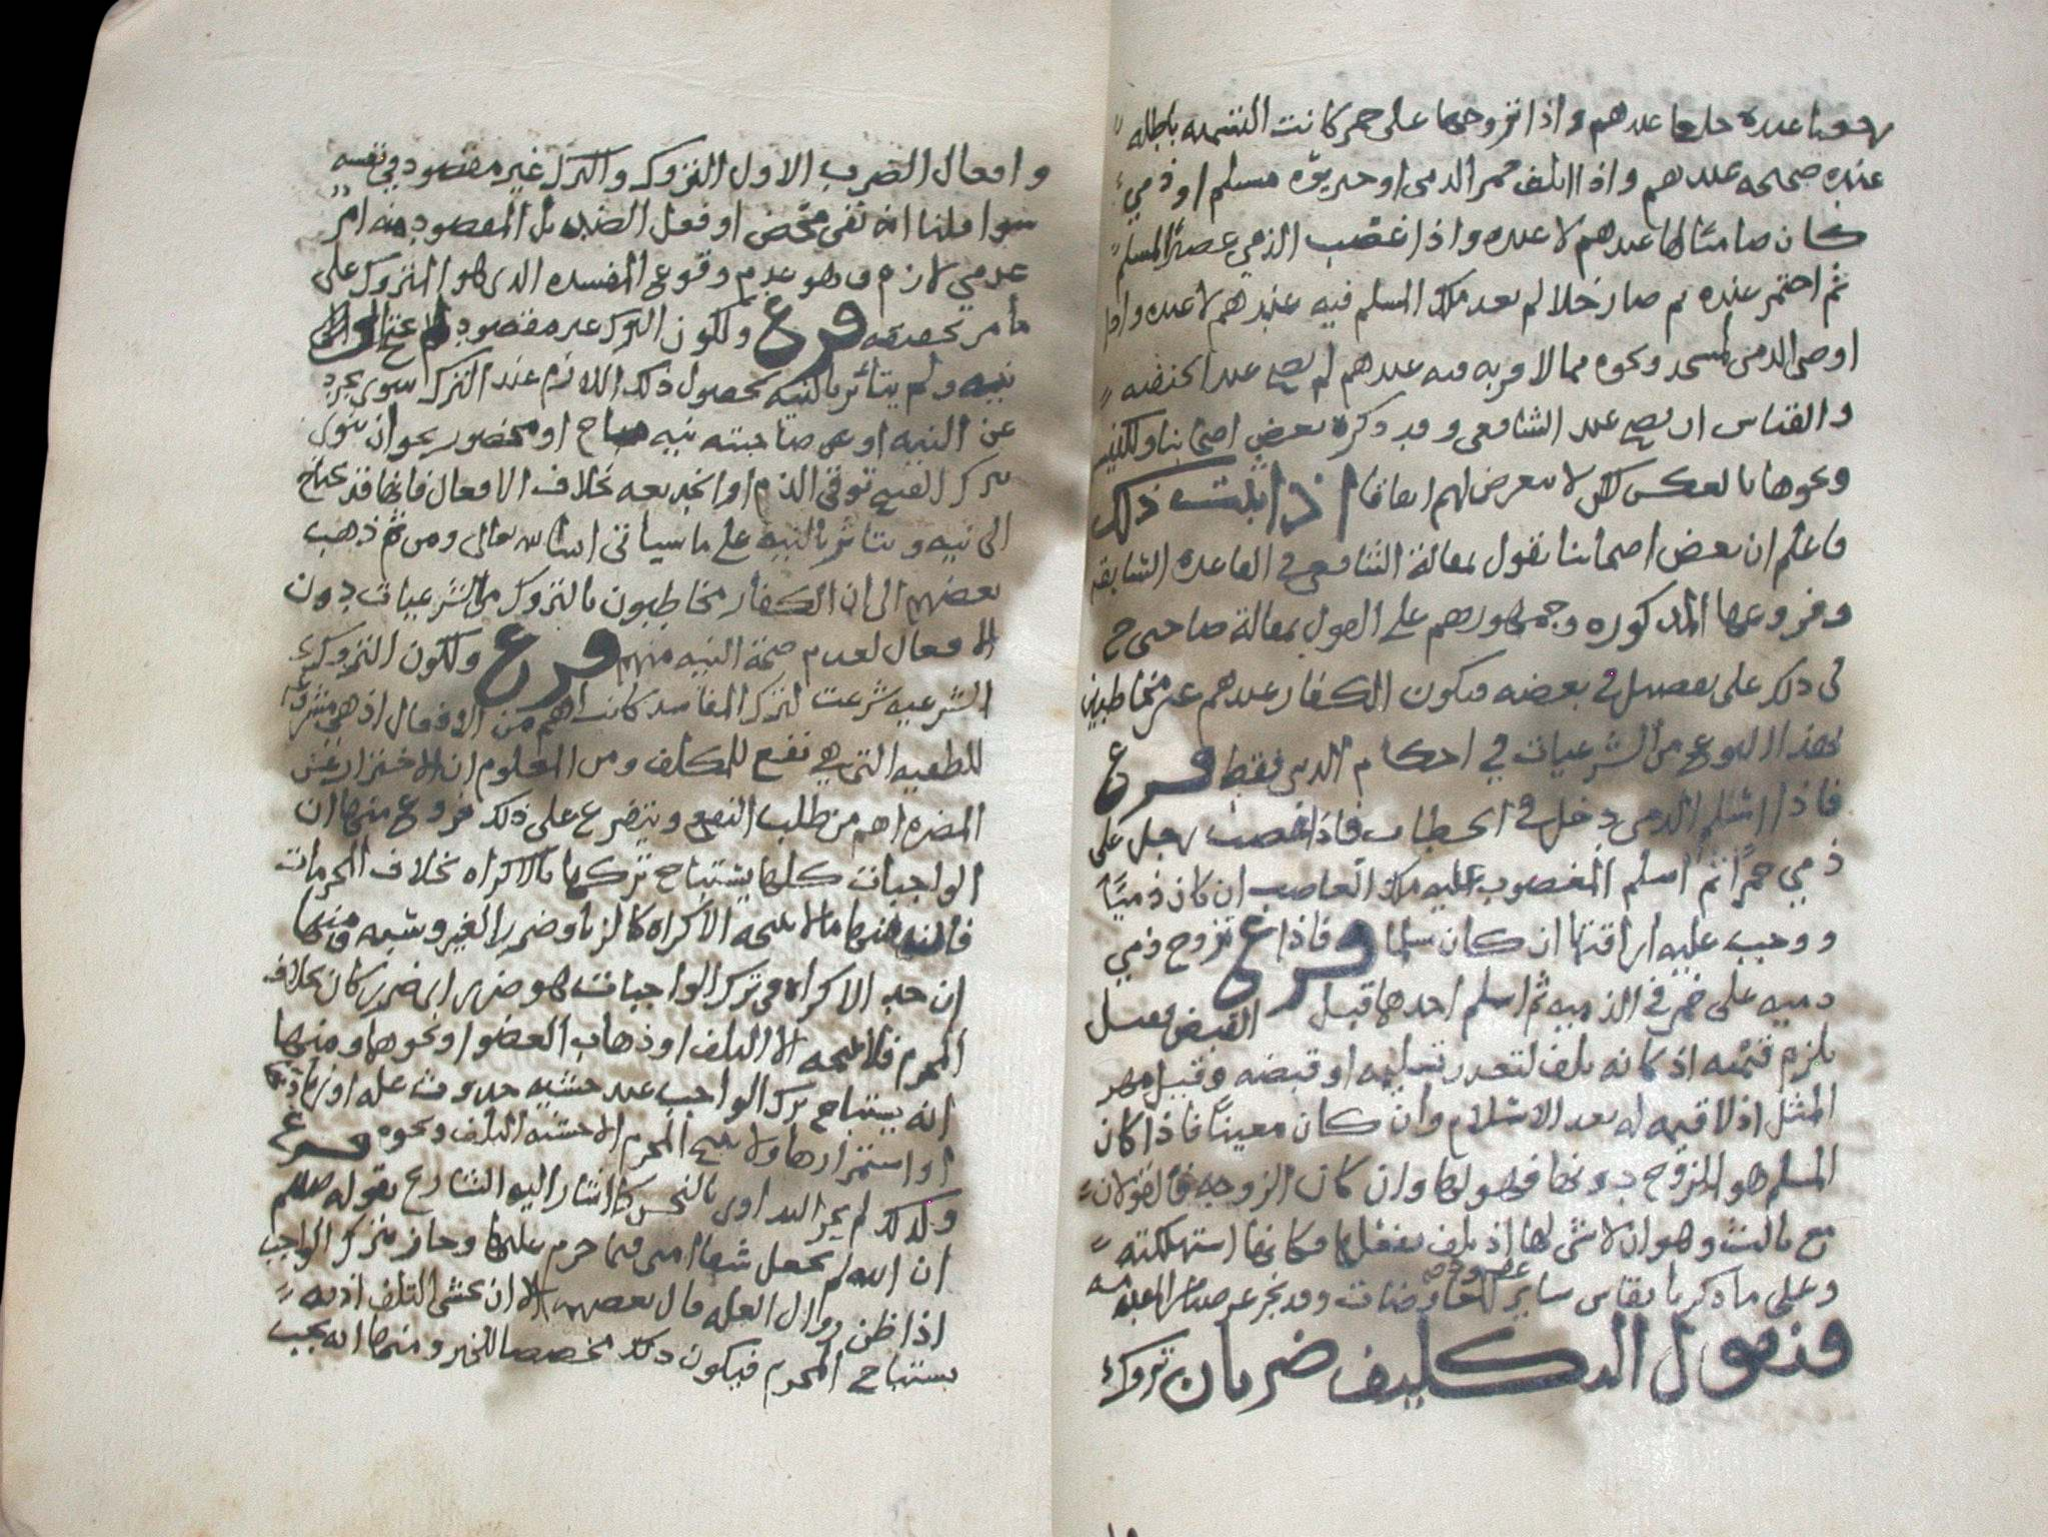 عنده خلعا عندهم واذا تزوجها على خمر كانت التسميه باطله
عنده صحيحه عندهم واذا اتلف خمر الذمي او خنزيره مسلم او ذمي
كان ضامنا لها عندهم لا عنده واذا غصب الذمي عصيرا لمسلم
ثم اختمر عنده ثم صار خلا لم يعد ملك المسلم فيه عندهم لا عنده واذا
اوصى الذمي لمسجد ونحوه مما لا قربه فيه عندهم لم يصح عند الحنفيه
والقياس ان يصح عند الشافعي وقد ذكره بعض اصحابنا وللكنيسه
ونحوها بالعكس لكن لا يتعرض لهم اتفاقا اذا ثبت ذلك
فاعلم ان بعض اصحابنا يقول بمقالة الشافعي في القاعده السابقه
وفروعها المذكوره وجمهورهم على القول بمقالة صاحبي ح
في ذلك على تفصيل في بعضه فيكون الكفار عندهم غير مخاطبين
بهذا النوع من الشرعيات في احكام الدنيا فقط فرع
فاذا اسلم الذمي دخل في الخطاب فاذا غصب رجل على
ذمي خمرا ثم اسلم المغصوب عليه ملك الغاصب ان كان ذميا
ووجب عليه اراقتها ان كان مسلما فرع فاذا تزوج ذمي
ذميه على خمر في الذمه ثم اسلم احدهما قبل القبض فقيل
يلزم قيمته اذ كانه تلف لتعذر تسليمه او قبضه وقيل مهر
المثل اذ لا قيمه له بعد الاسلام وان كان معينا فاذا كان
المسلم هو الزوج دونها فهو لها وان كان الزوجه فالقولان
مع ثالث وهو ان لا شي لها اذ تلف بفعلها فكانها استهلكته
وعلى ما ذكرنا يقاس ساير المعاوضات
فنقول التكليف ضربان تروك
وافعال الضرب الاول التروك والترك غير مقصود في نفسه
سوا قلنا انه نفي محض او فعل الضد بل المقصود منه امر
عدمي لازم وهو عدم وقوع المفسده الذي هو المتروك على
ما مر تحقيقه فرع ولكون الترك غير مقصود لم يحتج الى
نيه ولم يتاثر بالنيه بحصول ذلك اللازم عند الترك سوى تجرد
عن النيه او عن صاحبته نيه مباح او محضور نحو ان ينوي
بترك القبيح توقي الذم او الخديعه بخلاف الافعال فانها قد تحتاج
الى نيه وتتاثر بالنيه على ما سياتي ان شا الله تعالى ومن ثم ذهب
بعضهم الى ان الكفار مخاطبون بالتروك من الشرعيات دون
الافعال لعدم صحة النيه منهم فرع ولكون التروك
الشرعيه شرعت لترك المفاسد كانت اهم من الافعال اذ هي
للطفيه التي هي نفع للمكلف ومن المعلوم ان الاحتراز عن
المضره اهم من طلب النفع ويتفرع على ذلك فروع منها ان
الواجبات كلها يستباح تركها بالاكراه بخلاف المحرمات
فان منها ما لا يبيحه الاكراه كالزنا وضرر الغير وشبه ومنها
ان حد الاكراه في ترك الواجبات هو ضرر اي ضرر كان بخلاف
المحرم فلا يبيحه الا التلف او ذهاب العضو او نحوهما ومنها
انه يستباح ترك الواجب عند خشيه حدوث عله او زيادتها
او استمرارها ولا يبيح المحرم الا خشيه التلف ونحوه فرع
ولذلك لم يجز التداوي بالنجس كما اشار اليه الشارع بقوله صلعم
ان الله لم يجعل شفا امتي فيما حرم عليها وجاز بترك الواجب
اذا ظن زوال العله قال بعضهم الا ان يخشى التلف اذ به
يستباح المحرم فيكون ذلك مخصصا للخبر ومنها انه يجب